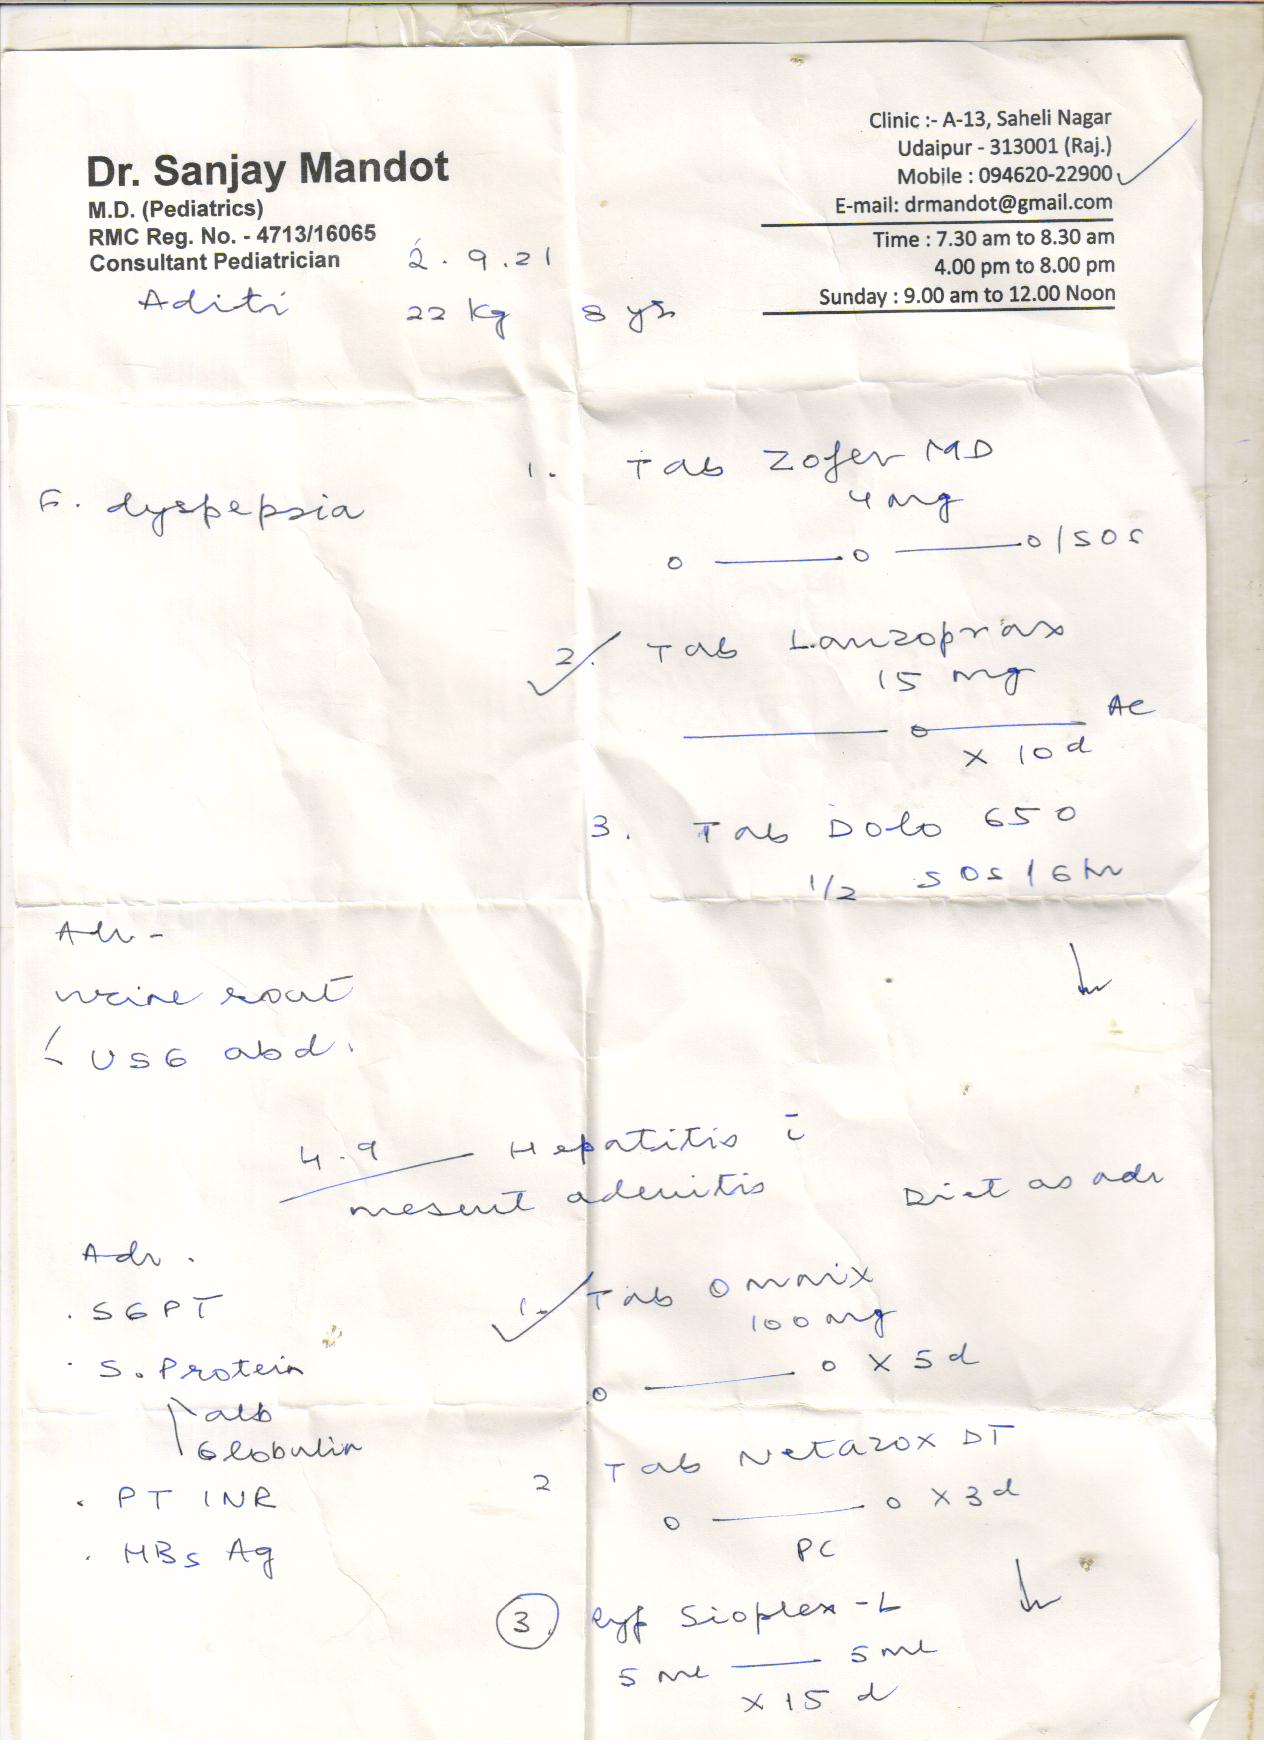 Dr. Sanjay Mandot
M.D. (Pediatrics)
RMC Reg. No. - 4713/16065
Consultant Pediatrician
Clinic :- A-13, Saheli Nagar
Udaipur - 313001 (Raj.)
Mobile : 094620-22900
E-mail: drmandot@gmail.com
Time : 7.30 am to 8.30 am
4.00 pm to 8.00 pm
Sunday : 9.00 am to 12.00 Noon
2.9.21
Aditi 22 kg 8 yrs
F. dyspepsia
1. Tab Zofer MD
4 mg
0 — 0 — 0/SOS
2. Tab Lanzoprax
15 mg
— 0 — AC
x 10 d
3. Tab Dolo 650
1/2 SOS / 6 hr
Adv -
urine rout
USG abd.
4.9 — Hepatitis c̄
mesent adenitis
Diet as adv
Adv.
. SGPT
. S. Protein
alb
Globulin
. PT INR
. HBs Ag
1. Tab Omnix
100 mg
0 — 0 x 5 d
2 Tab Netazox DT
0 — 0 x 3 d
PC
3. Syp Sioplex-L
5 ml — 5 ml
x 15 d